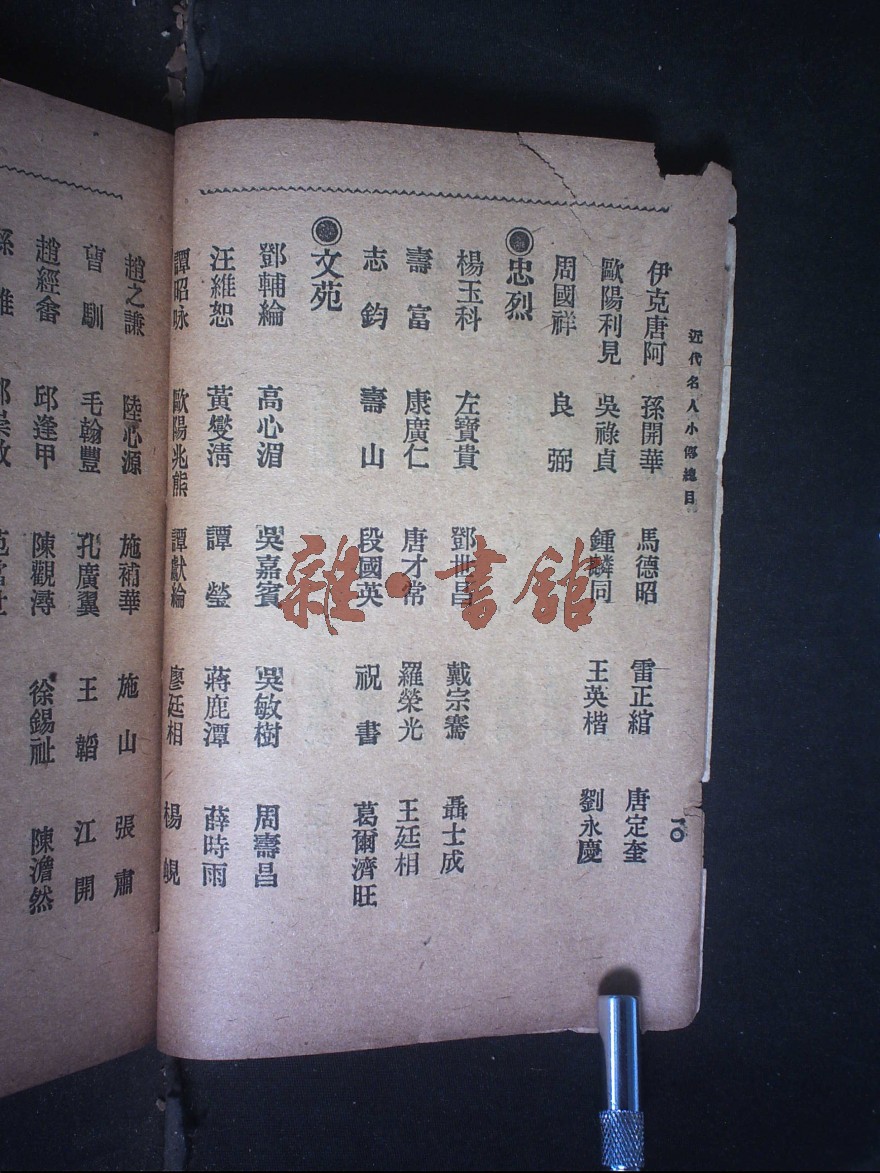 近代名人小傳總目
一〇
伊克唐阿 孫開華 馬德昭 雷正綰 唐定奎
歐陽利見 吳祿貞 鍾麟同 王英楷 劉永慶
周國祥 良弼
忠烈
楊玉科 左寶貴 鄧世昌 戴宗騫 聶士成
壽富 康廣仁 唐才常 羅榮光 王廷相
志鈞 壽山 段國英 祝書 葛爾濟旺
文苑
鄧輔綸 高心湄 吳嘉賓 吳敏樹 周壽昌
汪維恕 黃燮淸 譚瑩 蔣鹿潭 薛時雨
譚昭咏 歐陽兆熊 譚獻綸 廖廷相 楊峴
趙之謙 陸心源 施補華 施山 張肅
曹馴 毛翰豐 孔廣翼 王韜 江開
趙經畬 邱逢甲 陳觀潯 徐錫祉 陳澹然
孫雄
雜·書舘